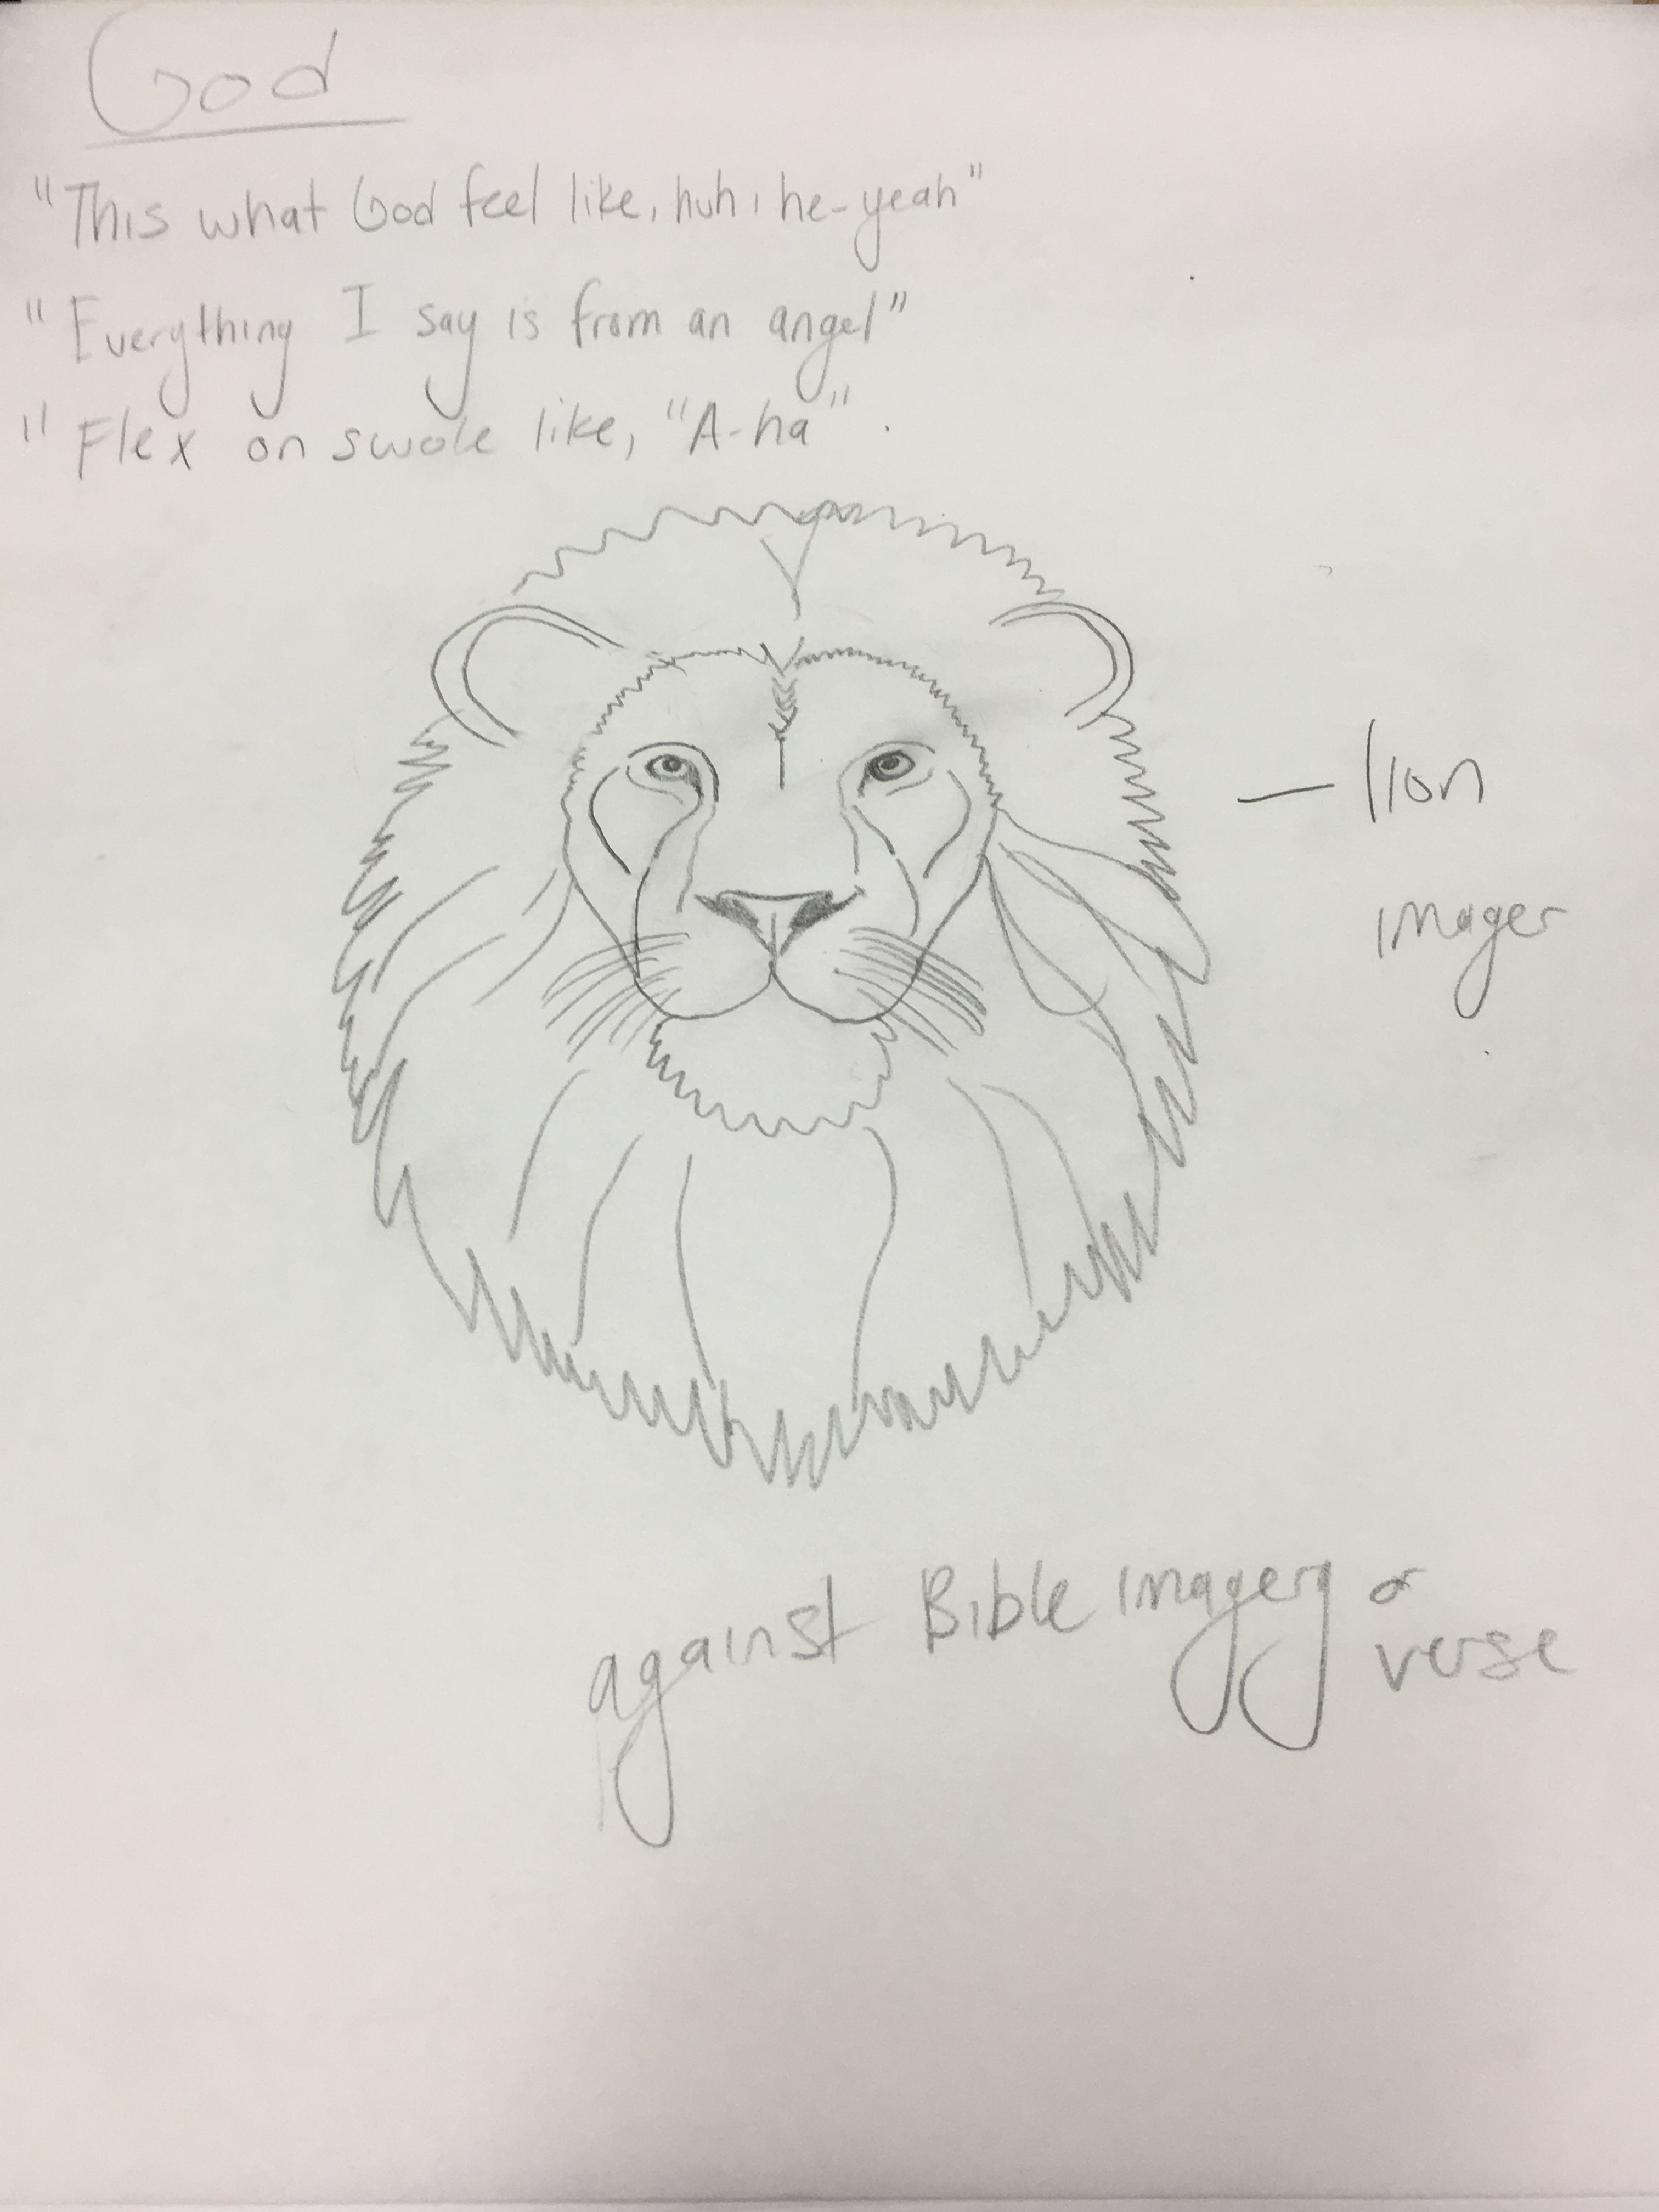 God
"This what God feel like, huh, he-yeah"
"Everything I say is from an angel"
"Flex on swole like, "A-ha".
- lion
imager
against Bible imagery or
verse